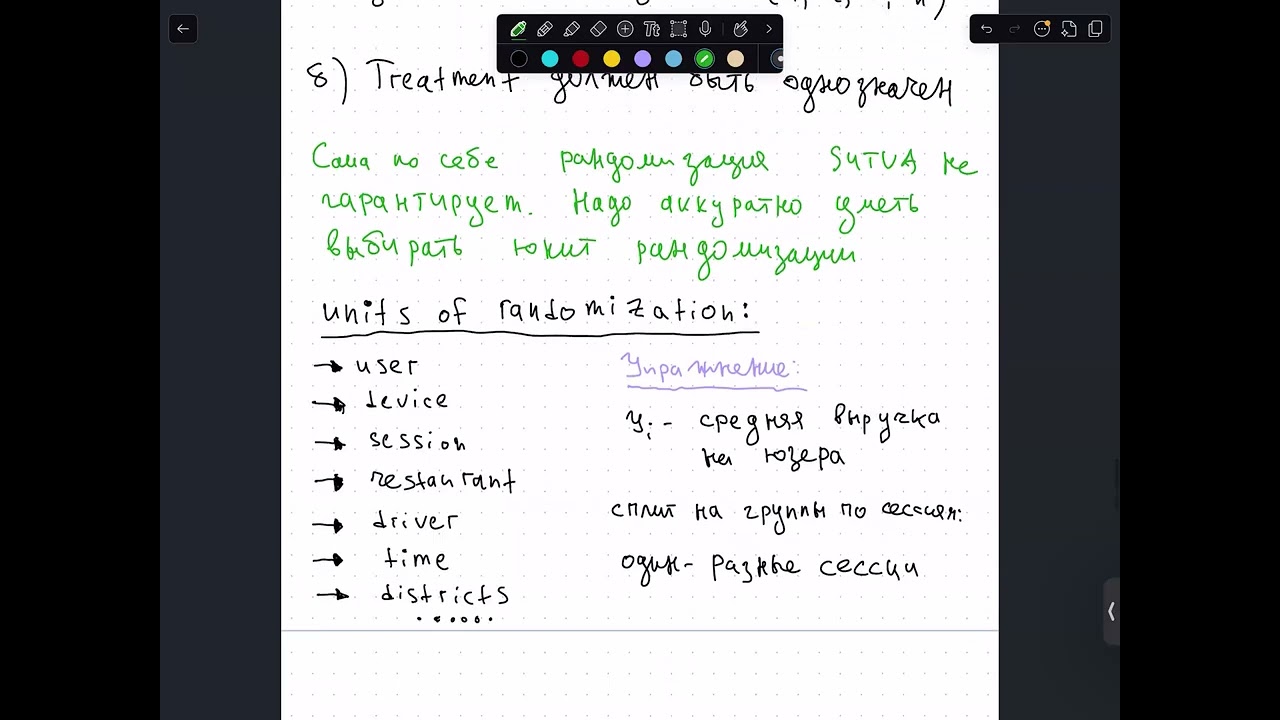 б) Treatment должен быть однозначен
Сама по себе рандомизация SUTVA не
гарантирует. Надо аккуратно уметь
выбирать юнит рандомизации
units of randomization:
→ user
→ device
→ session
→ restaurant
→ driver
→ time
→ districts
......
Упражнение:
Yi - средняя выручка
на юзера
сплит на группы по сессиям:
один - разные сессии